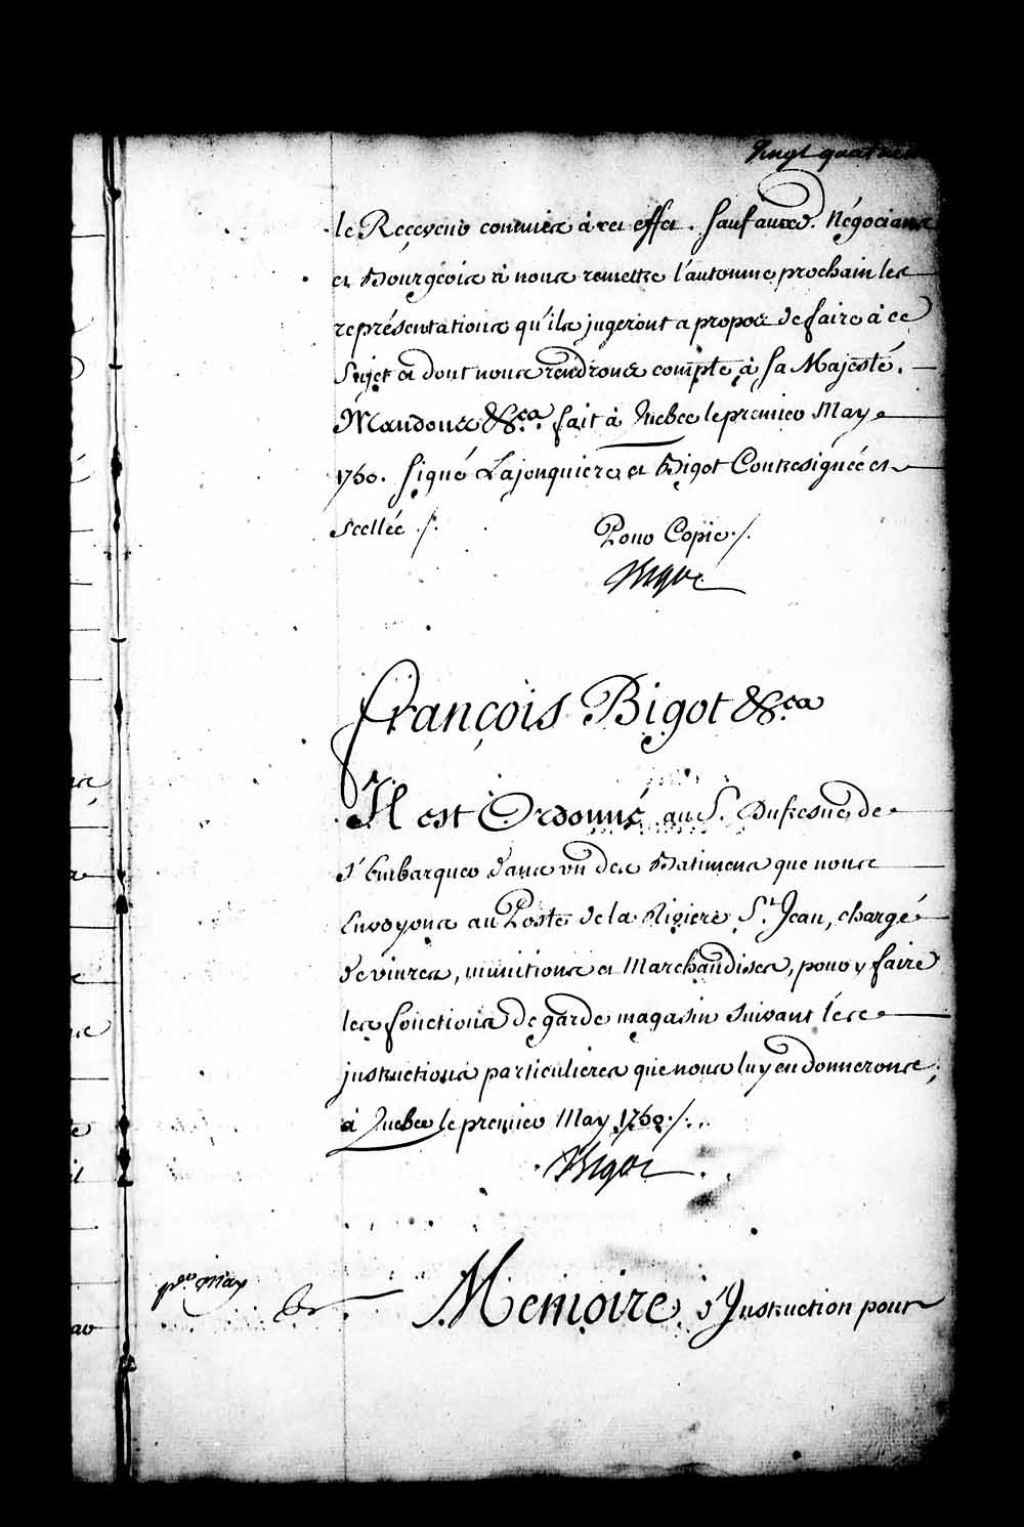 Vingt quatrieme
le Receveur commis à cet effet. Sauf auxd. Négocians
et Bourgeois à nous remettre l'automne prochain les
représentations qu'ils jugeront a propos de faire à ce
Sujet et dont nous rendrons compte à Sa Majesté.
Mandons &c.a fait à Quebec le premier May
1750. Signé Lajonquiere et Bigot Contresignée et
Scellée ./.
Pour Copie ./.
Bigot
François Bigot &c.a
Il est Ordonné au S. Dufresne de
s'Embarquer dans un des Batimens que nous
Envoyons au Poste de la Riviere S.t Jean, chargé
de vivres, munitions et Marchandises, pour y faire
les fonctions de garde magasin suivant les
instructions particulieres que nous luy en donnerons;
à Quebec le premier May 1750 ./.
Bigot
p.er May
Memoire d'Instruction pour